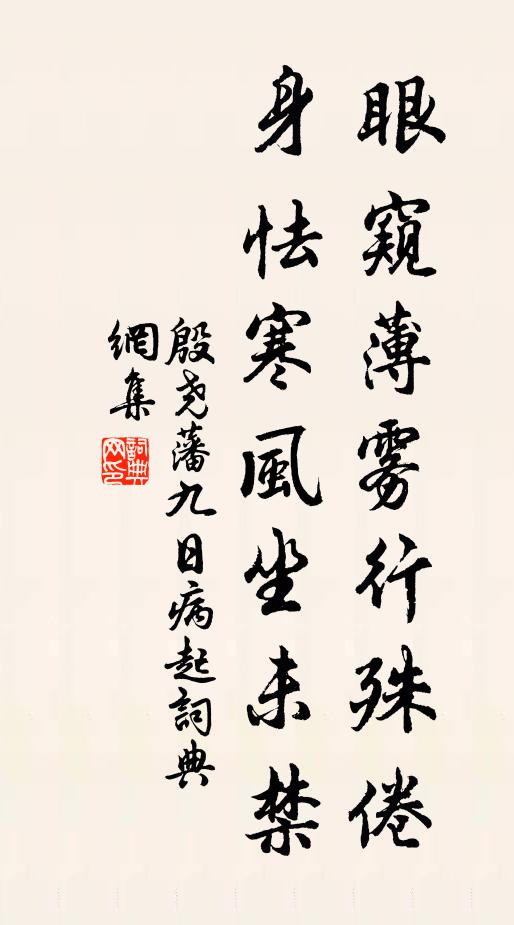 眼窺薄雾行殊倦
身怯寒風坐未禁
殷尧藩九日病起詞典
網集
詞典网印